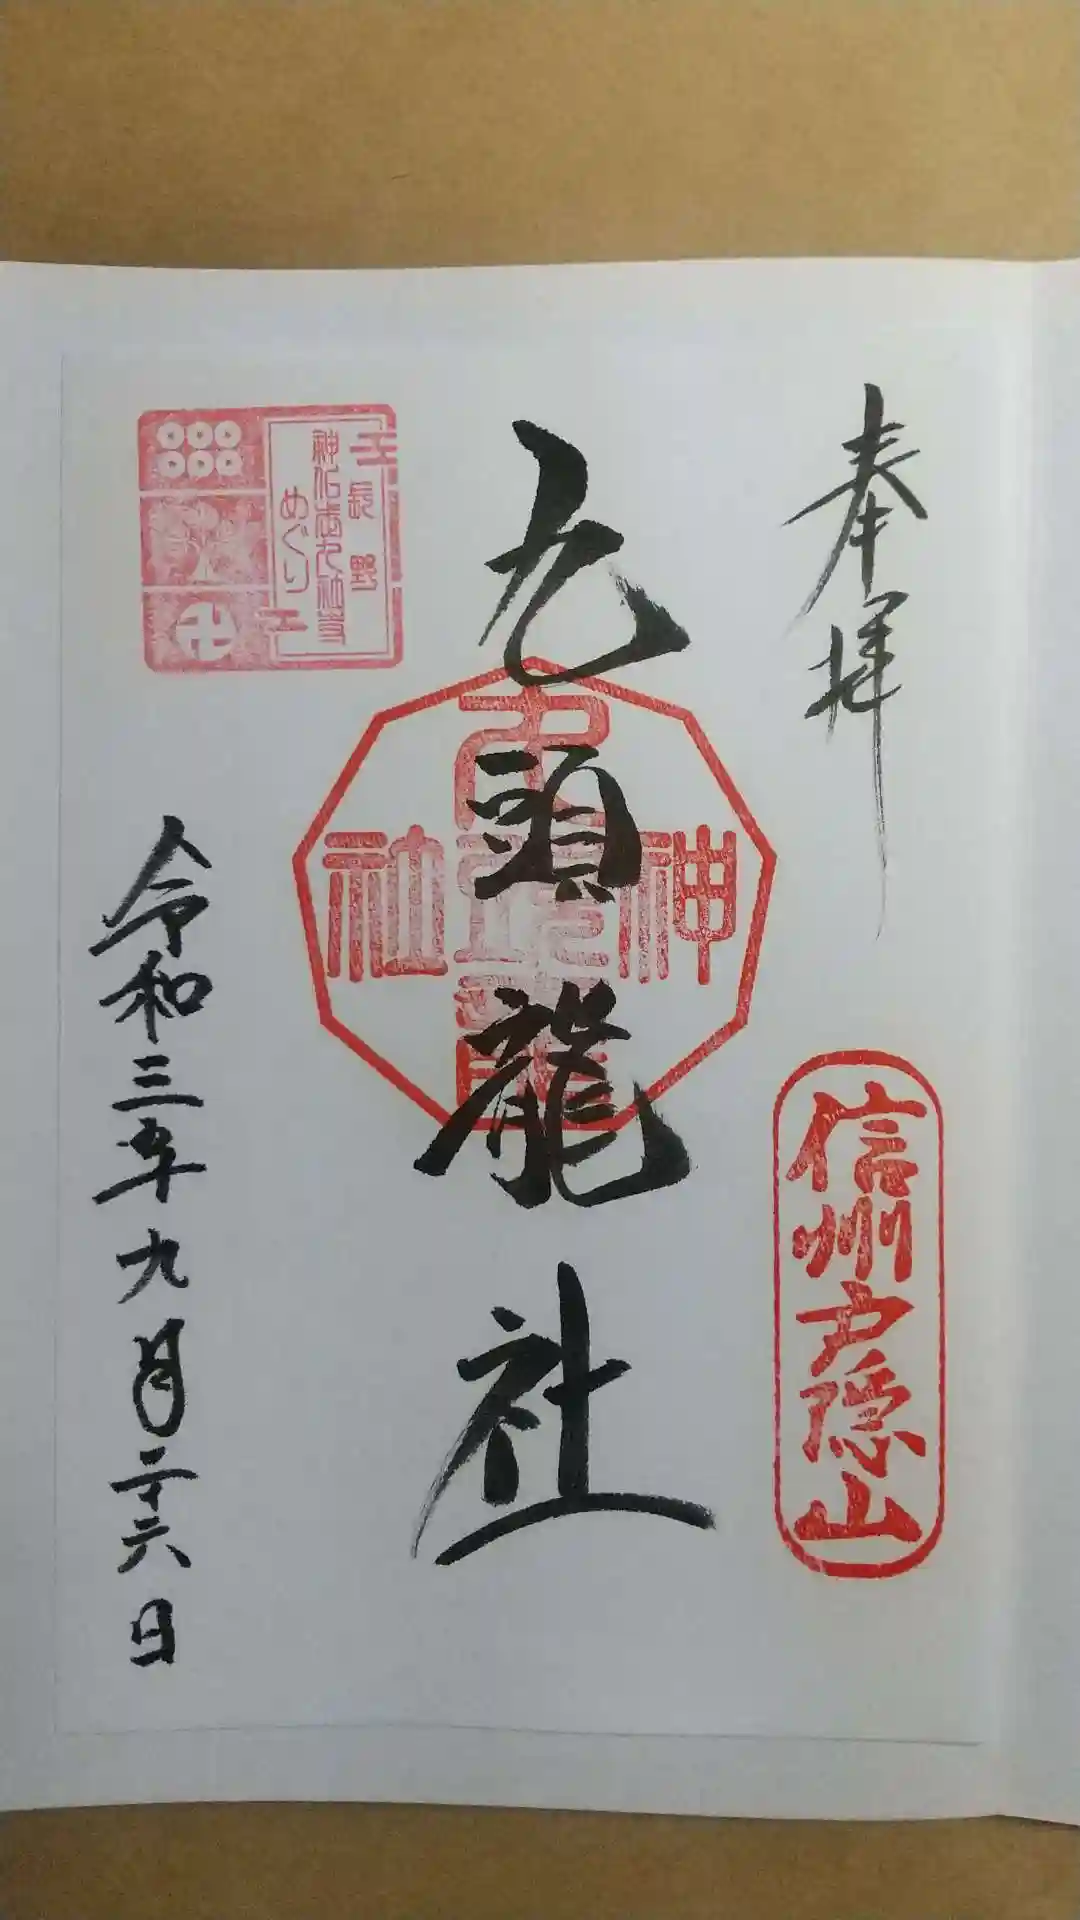 奉拝
信州戸隠山
九頭龍社
九頭龍
神
社
長野
神仏古九社寺
めぐり
令和三年九月二十六日